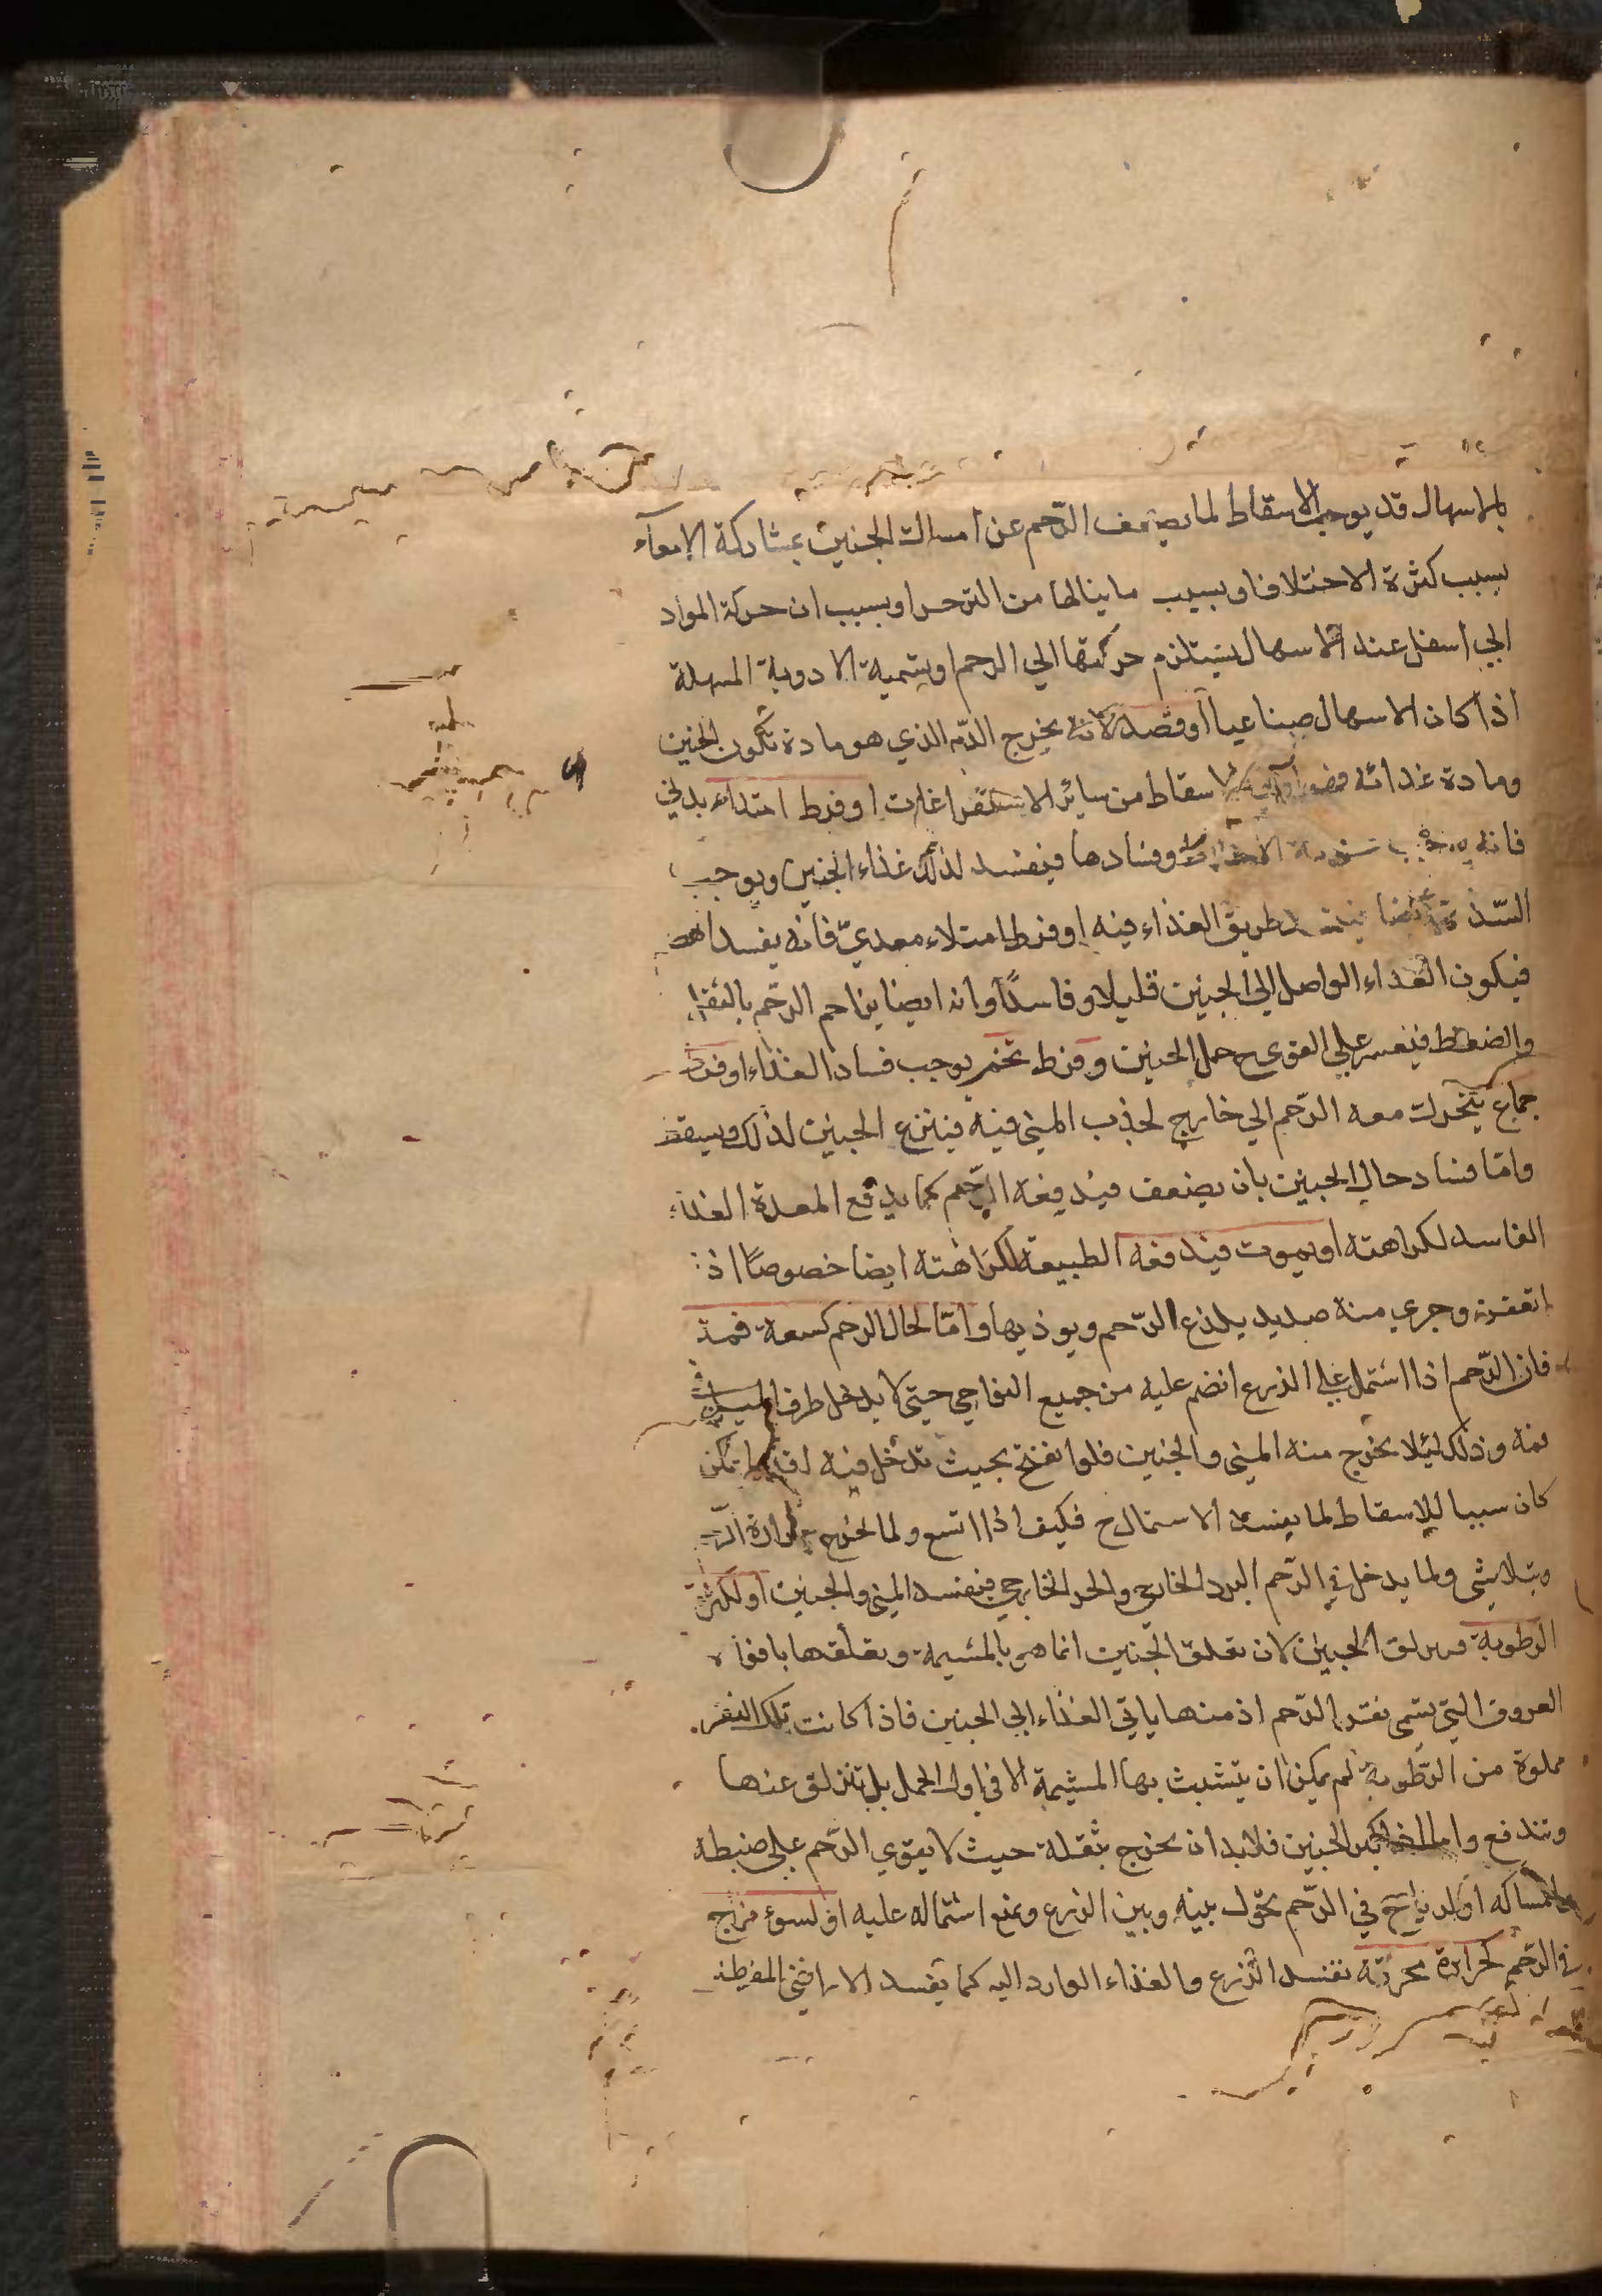 بالاسهال قد يوجب الاسقاط لما يضعف الرّحم عن امساك الجنين بمشاركة الامعآء
بسبب كثرة الاختلاف او بسبب ما ينالها من التزحر او بسبب ان حركة المواد
الي اسفل عند الاسهال يستلزم حركتها الي الرحم او بتمية الادوية المسهلة
اذا كان الاسهال صناعيا او فصد لانه يخرج الدّم الذي هو مادة تكون الجنين
ومادة غذائه اسقاط من سائر الاستفراغات او فرط امتلاء بدني
فانه يوجب الاخلاط وفسادها فيفسد لذلك غذاء الجنين ويوجب
السّدة ايضا طريق الغذاء فيه او فرط امتلاء معديّ فانه يفسد الهضم
فيكون الغذاء الواصل الي الجنين قليلا او فاسدًا وانه ايضا يزاحم الرّحم بالثقل
والضغط فيعسر علي القوي ح حمل الجنين وفرط تخم يوجب فساد الغذاء او فرط
جماع يتحرك معه الرّحم الي خارج لجذب المني فيه فينزع الجنين لذلك ويسقط
وامّا فساد حال الجنين بان يضعف فيدفعه الرّحم كما يدفع المعدة الغذاء
الفاسد لكراهته او يموت فيدفعه الطبيعة لكراهته ايضا خصوصًا اذا
اتعفن وجري منه صديد يلذع الرّحم ويوذيها وامّا لحال الرحم كسعة فمه
فان الرّحم اذا اشتمل علي الزرع انضم عليه من جميع النواحي حتي لا يدخل طرف الميل
فمه وذلك لئلا يخرج منه المني والجنين فلو انفتح بحيث تدخل فيه
كان سببا للاسقاط لما يفسد الاستمالح فكيف اذا اتسع ولما تخرج حرارة الرّحم
ويتلاشي ولما يدخل في الرّحم البرد الخارجي والحر الخارجي فيفسد المني والجنين او لكثرة
الرطوبة فيزلق الجنين لان تعلق الجنين انما هو بالمشيمة وتعلقها بافواه
العروق التي تسمي نقر الرّحم اذ منها ياتي الغذاء الي الجنين فاذا كانت تلك النقر
مملوة من الرّطوبة لم يمكن ان يتشبث بها المشيمة الا في اول الحمل بل تنزلق عنها
وتندفع واما لكبر الجنين فلابد ان يخرج بثقله حيث لا يقوي الرّحم علي ضبطه
وامساكه او لرياح في الرّحم يحول بينه وبين الزرع ويمنع اشتماله عليه او لسوء مزاج
في الرّحم لحرارة محرقة تفسد الزرع والغذاء الوارد اليه كما يفسد الاراضي المفرطة